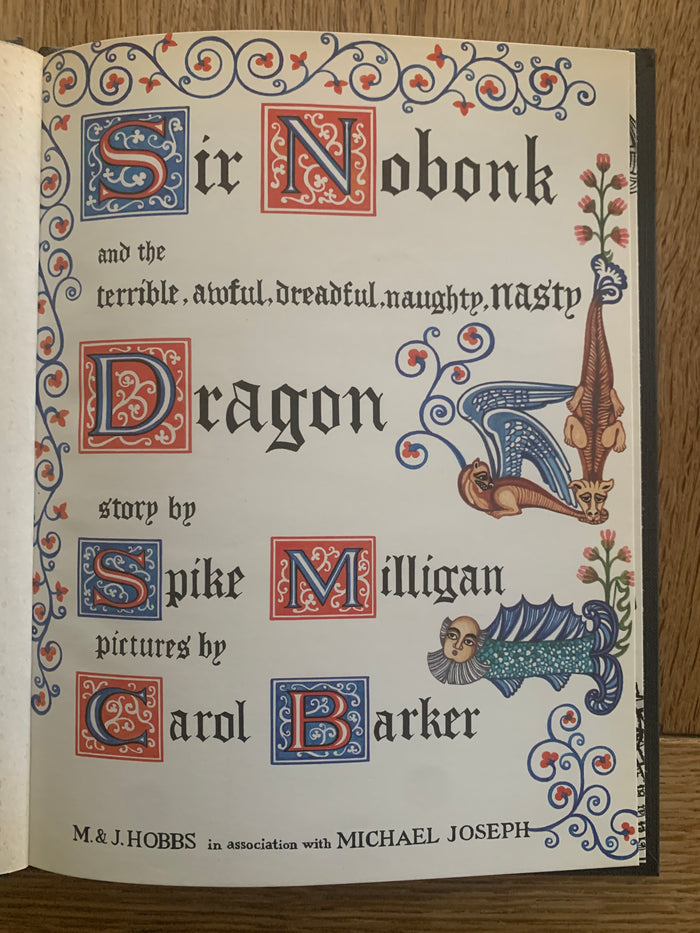 Sir Nobonk
and the
terrible, awful, dreadful, naughty, nasty
Dragon
story by
Spike Milligan
pictures by
Carol Barker
M. & J. HOBBS in association with MICHAEL JOSEPH